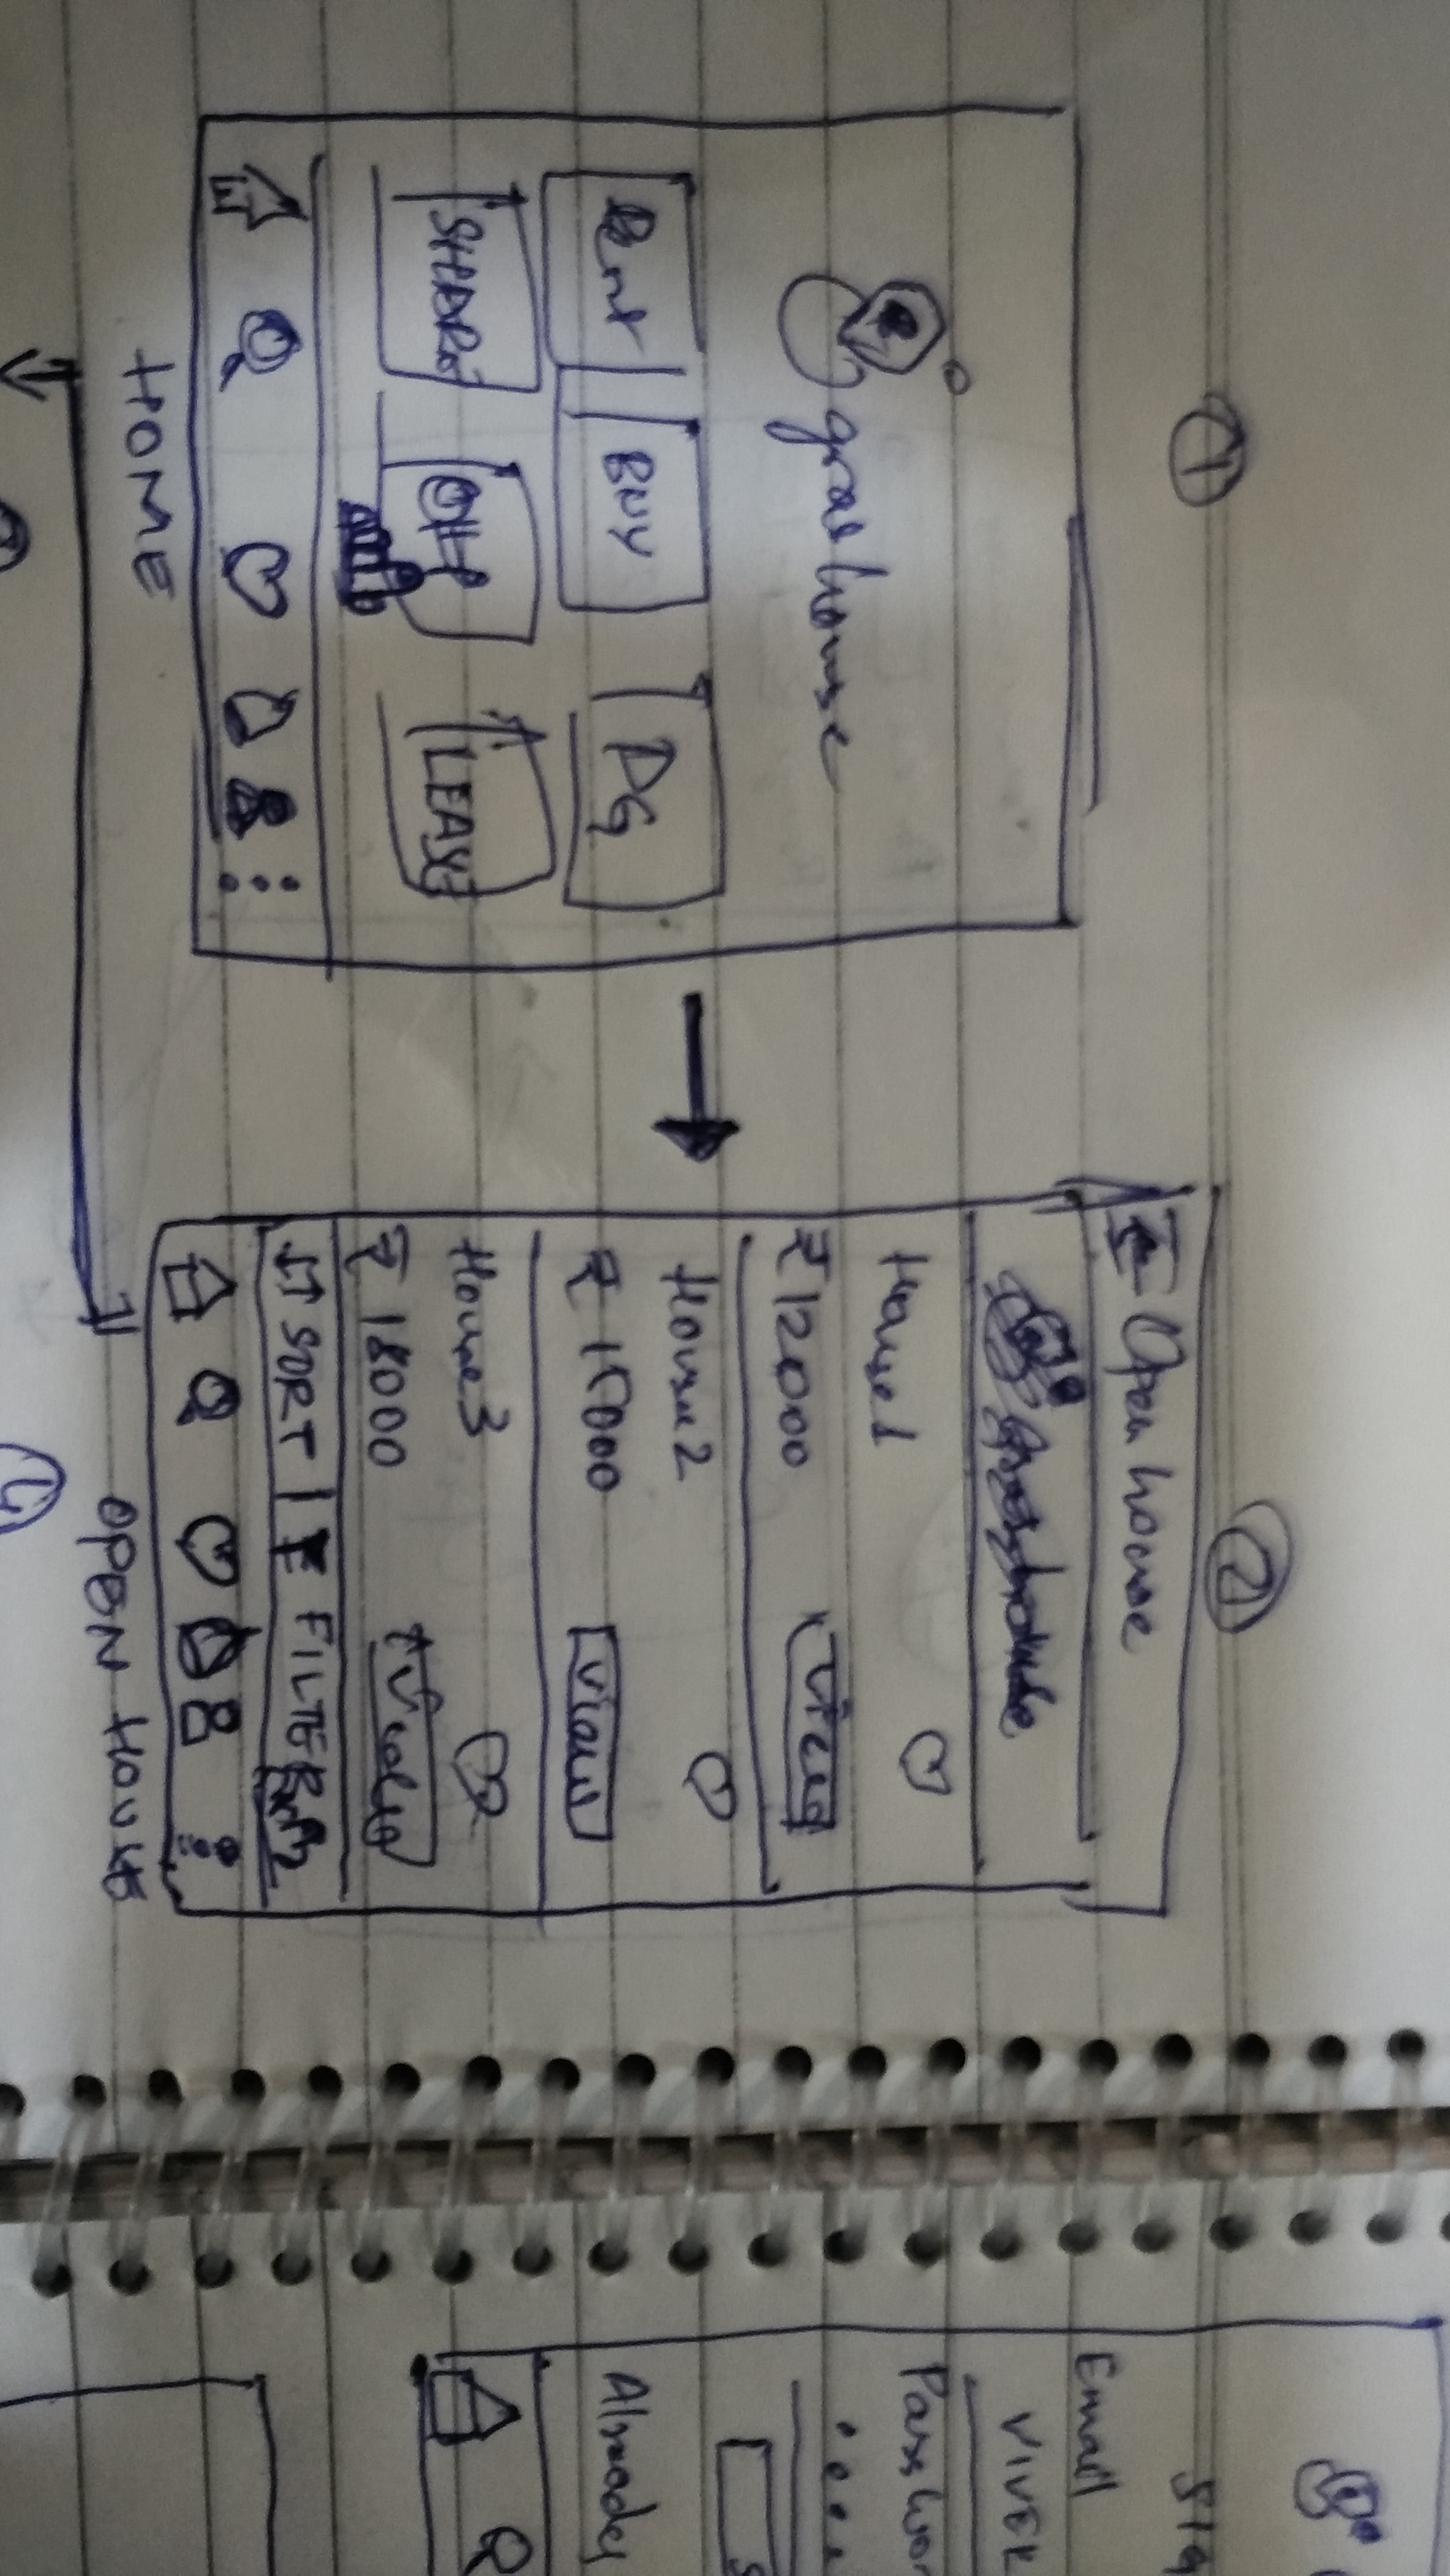 1
grashouse
Rent BUY PG
SHARE OH LEASE
HOME
2
Open house
House 1
₹ 12000 View
House 2
₹ 15000 View
House 3
₹ 18000 View
SORT | FILTER
OPEN HOUSE
Email
VIVEK
Passwor
Already